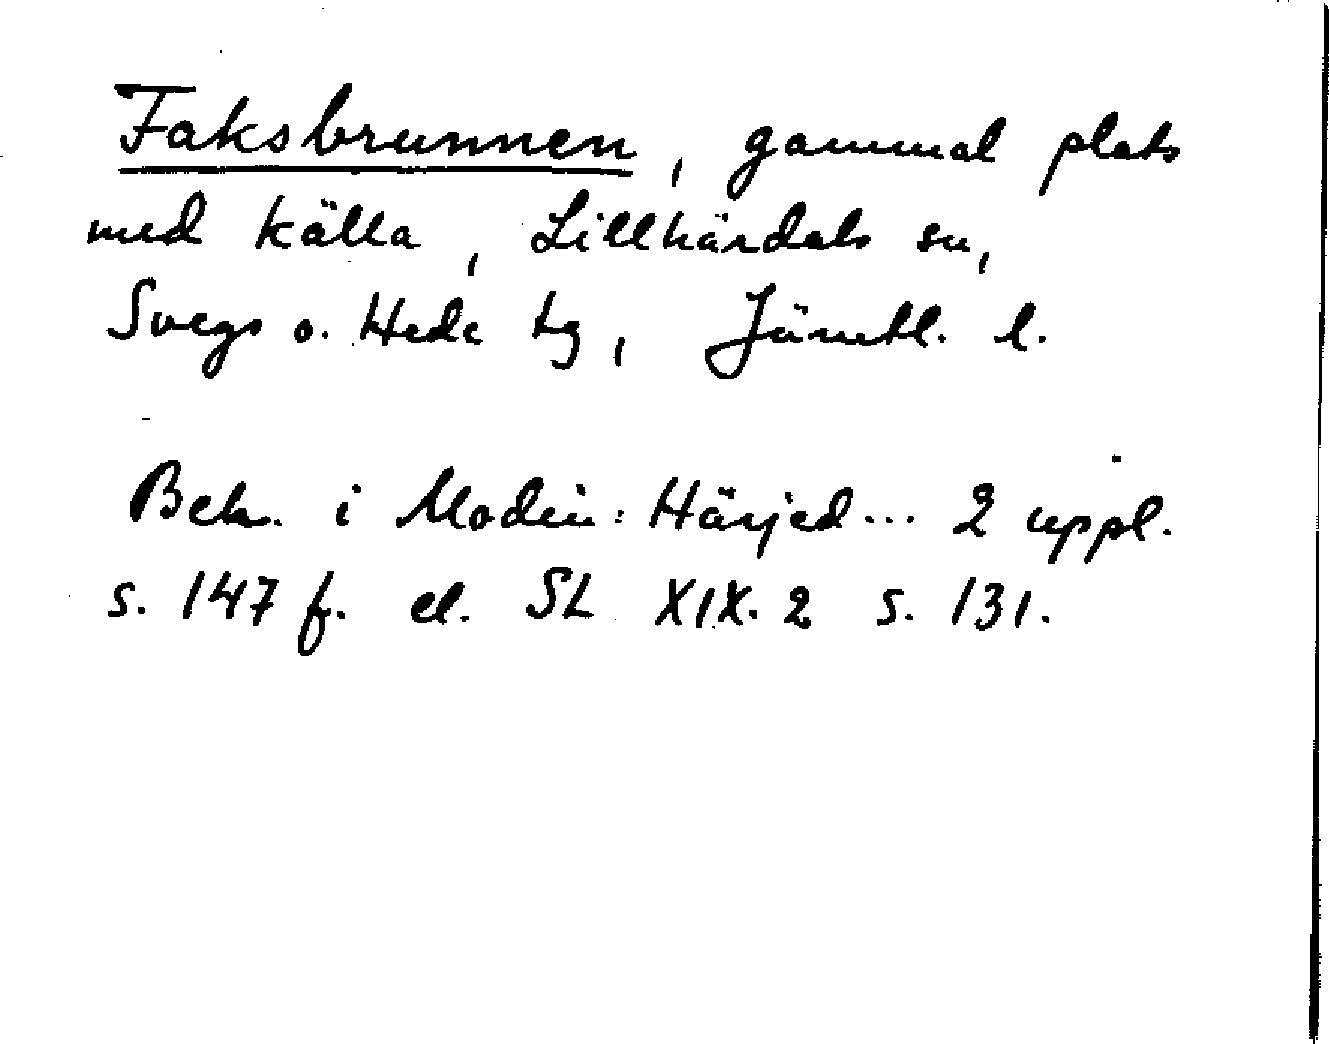 Faksbrunnen, gammal plats
med källa, Lillhärdals sn,
Svegs o. Hede tg, Jämtl. l.
Bek. i Modin: Härjed... 2 uppl.
s. 147 f. el. SL XIX. 2 s. 131.